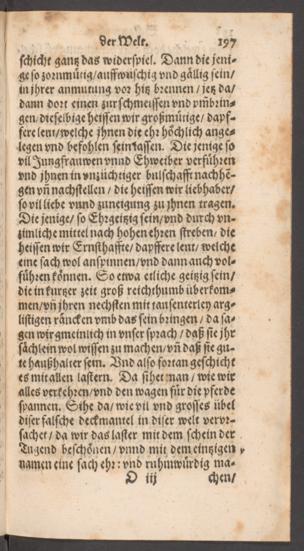 der Welt. 197
schicht gantz das widerspiel. Dann die jeni-
ge so zornmütig/auffwüschig vnd gällig sein/
in jhrer anmutung vor hitz brennen / jetz da/
dann dort einen zur schmeissen vnd vm̃brin-
gen/ dieselbige heissen wir großmütige/ dapf-
fere leut/welche jhnen die ehr höchlich ange-
legen vnd befohlen sein lassen. Die jenige so
vil Jungfrauwen vnnd Ehweiber verführen
vnd jhnen in vnzüchtiger bulschafft nachhẽ-
gen vñ nachstellen / die heissen wir liebhaber/
so vil liebe vnnd zuneigung zu jhnen tragen.
Die jenige/ so Ehrgeitzig sein/vnd durch vn-
zimliche mittel nach hohen ehren streben/ die
heissen wir Ernsthaffte/ dapffere leut/ welche
eine sach wol anspinnen/vnd dann auch vol-
führen können. So etwa etliche geitzig sein/
die in kurtzer zeit groß reichthumb überkom-
men/vñ jhren nechsten mit tausenterley arg-
listigen räncken vmb das sein bringen / da sa-
gen wir gmeinlich in vnser sprach / daß sie jhr
sächlein wol wissen zu machen/ vñ daß sie gu-
te haußhalter sein. Vnd also fortan geschicht
es mit allen lastern. Da sihet man / wie wir
alles verkehren/vnd den wagen für die pferde
spannen. Sihe da/ wie vil vnd grosses übel
diser falsche deckmantel in diser welt verur-
sachet/ da wir das laster mit dem schein der
Tugend beschönen/ vnnd mit dem eintzigen
namen eine sach ehr: vnd ruhmwürdig ma-
O iij chen/